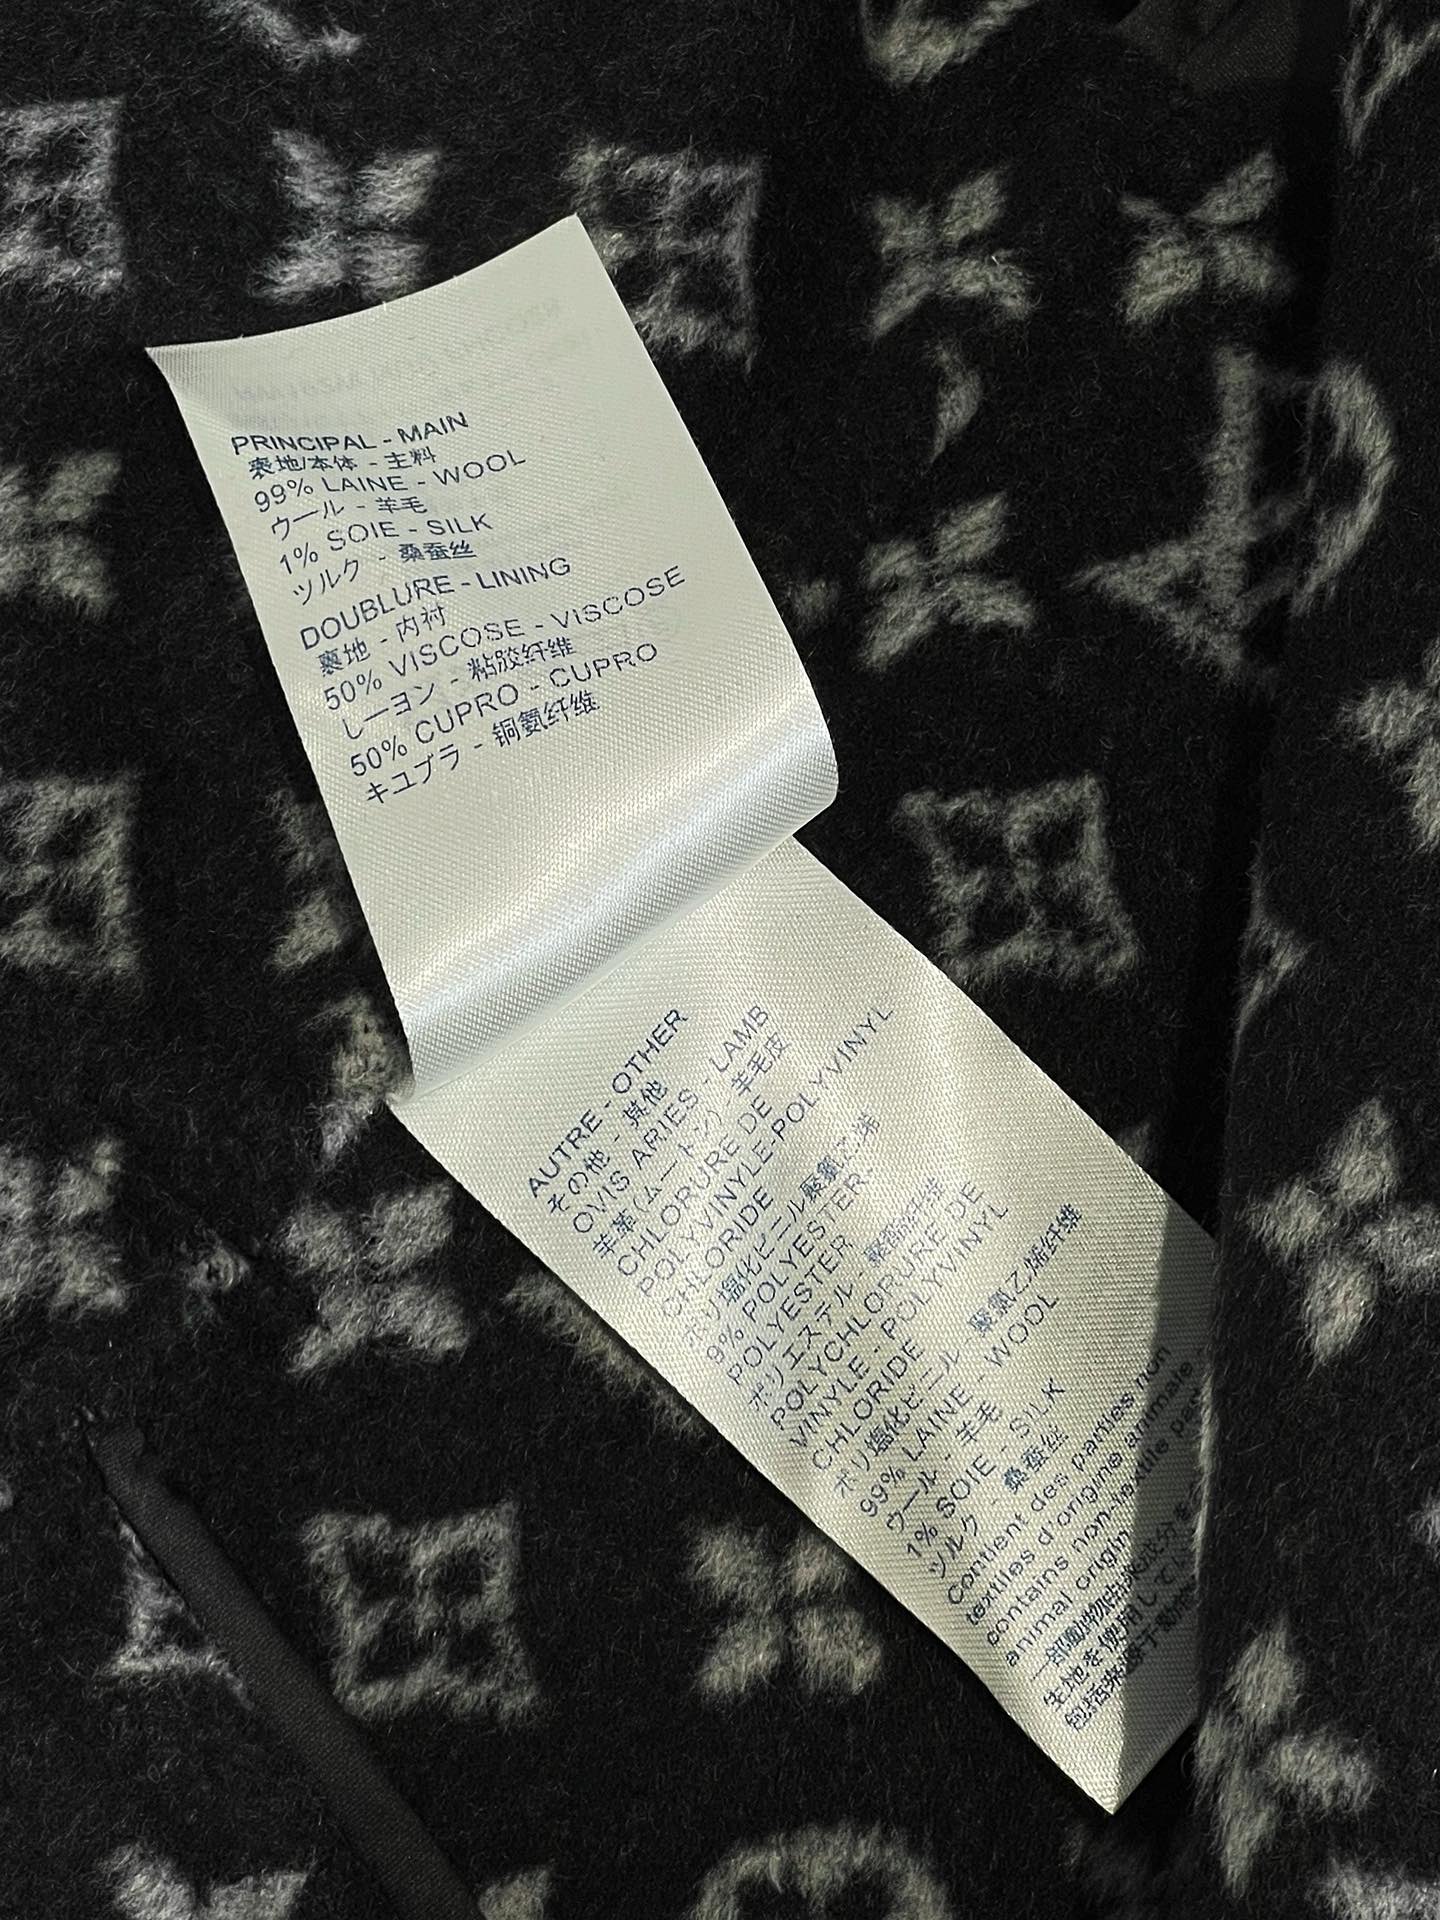 PRINCIPAL - MAIN
表地/本体 - 主料
99% LAINE - WOOL
ウール - 羊毛
1% SOIE - SILK
ツルク - 桑蚕丝
DOUBLURE - LINING
裏地 - 内衬
50% VISCOSE - VISCOSE
レーヨン - 粘胶纤维
50% CUPRO - CUPRO
キユプラ - 铜氨纤维
AUTRE - OTHER
その他 - 其他
OVIS ARIES - LAMB
羊革(ムートン) 羊毛皮
CHLORURE DE
POLYVINYLE-POLYVINYL
CHLORIDE
ポリ塩化ビニル聚氯乙烯
9% POLYESTER-
POLYESTER
ポリエステル - 聚酯纤维
POLYCHLORURE DE
VINYLE - POLYVINYL
CHLORIDE
ポリ塩化ビニル - 聚氯乙烯纤维
99% LAINE - WOOL
ウール - 羊毛
1% SOIE - SILK
ツルク - 桑蚕丝
Contient des parties non
textiles d'origine animale -
contains non-textile
animal origin
一部動物由来成分を
生地を使用して